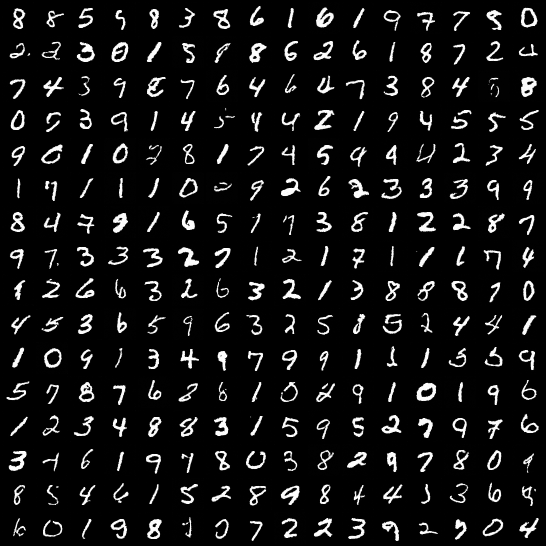 8 8 5 9 8 3 8 6 1 6 1 9 7 7 5 0
2 2 3 0 1 5 8 8 6 2 6 1 8 7 2 4
7 4 3 9 8 7 6 4 6 4 7 3 8 4 5 8
0 5 3 9 1 4 5 4 4 2 1 9 4 5 5 5
9 0 1 0 2 8 1 7 4 5 9 4 4 2 3 4
1 7 1 1 1 0 9 2 6 2 3 3 3 9 9
8 4 7 9 1 6 5 1 7 3 8 1 2 2 8 7
9 7 3 3 3 2 7 1 2 1 7 1 1 1 7 4
9 2 6 6 3 2 6 3 2 1 3 8 8 8 7 0
4 5 3 6 5 9 6 3 2 5 8 5 2 4 4 1
1 0 9 1 3 4 9 7 9 9 1 1 1 3 5 9
5 7 8 7 6 8 8 1 0 2 9 1 0 1 9 6
1 2 3 4 8 8 3 1 5 9 5 2 7 9 7 6
3 4 6 1 9 7 8 0 3 8 2 9 7 8 0 9
8 5 4 6 1 5 2 8 9 8 4 4 1 3 6 9
6 0 1 9 8 1 0 7 2 2 3 9 2 5 0 4